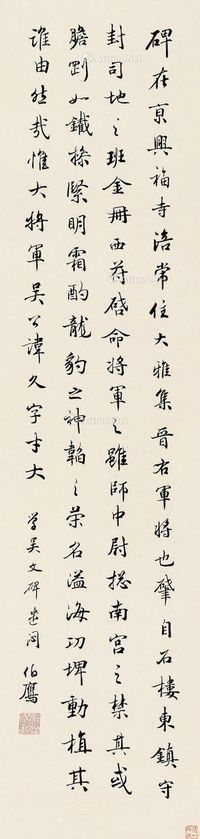 碑在京興福寺陪常住大雅集晉右軍將也肇自石樓東鎮守
封司地之班金冊西苻啓命將軍之雖師中尉揔南宮之禁其或
膽㓰如鐵操緊明霜酌龍豹之神韜之榮名溢海功埤動植其
誰由然哉惟大將軍吳公諱文字才大
學吳文碑遣悶 伯鷹